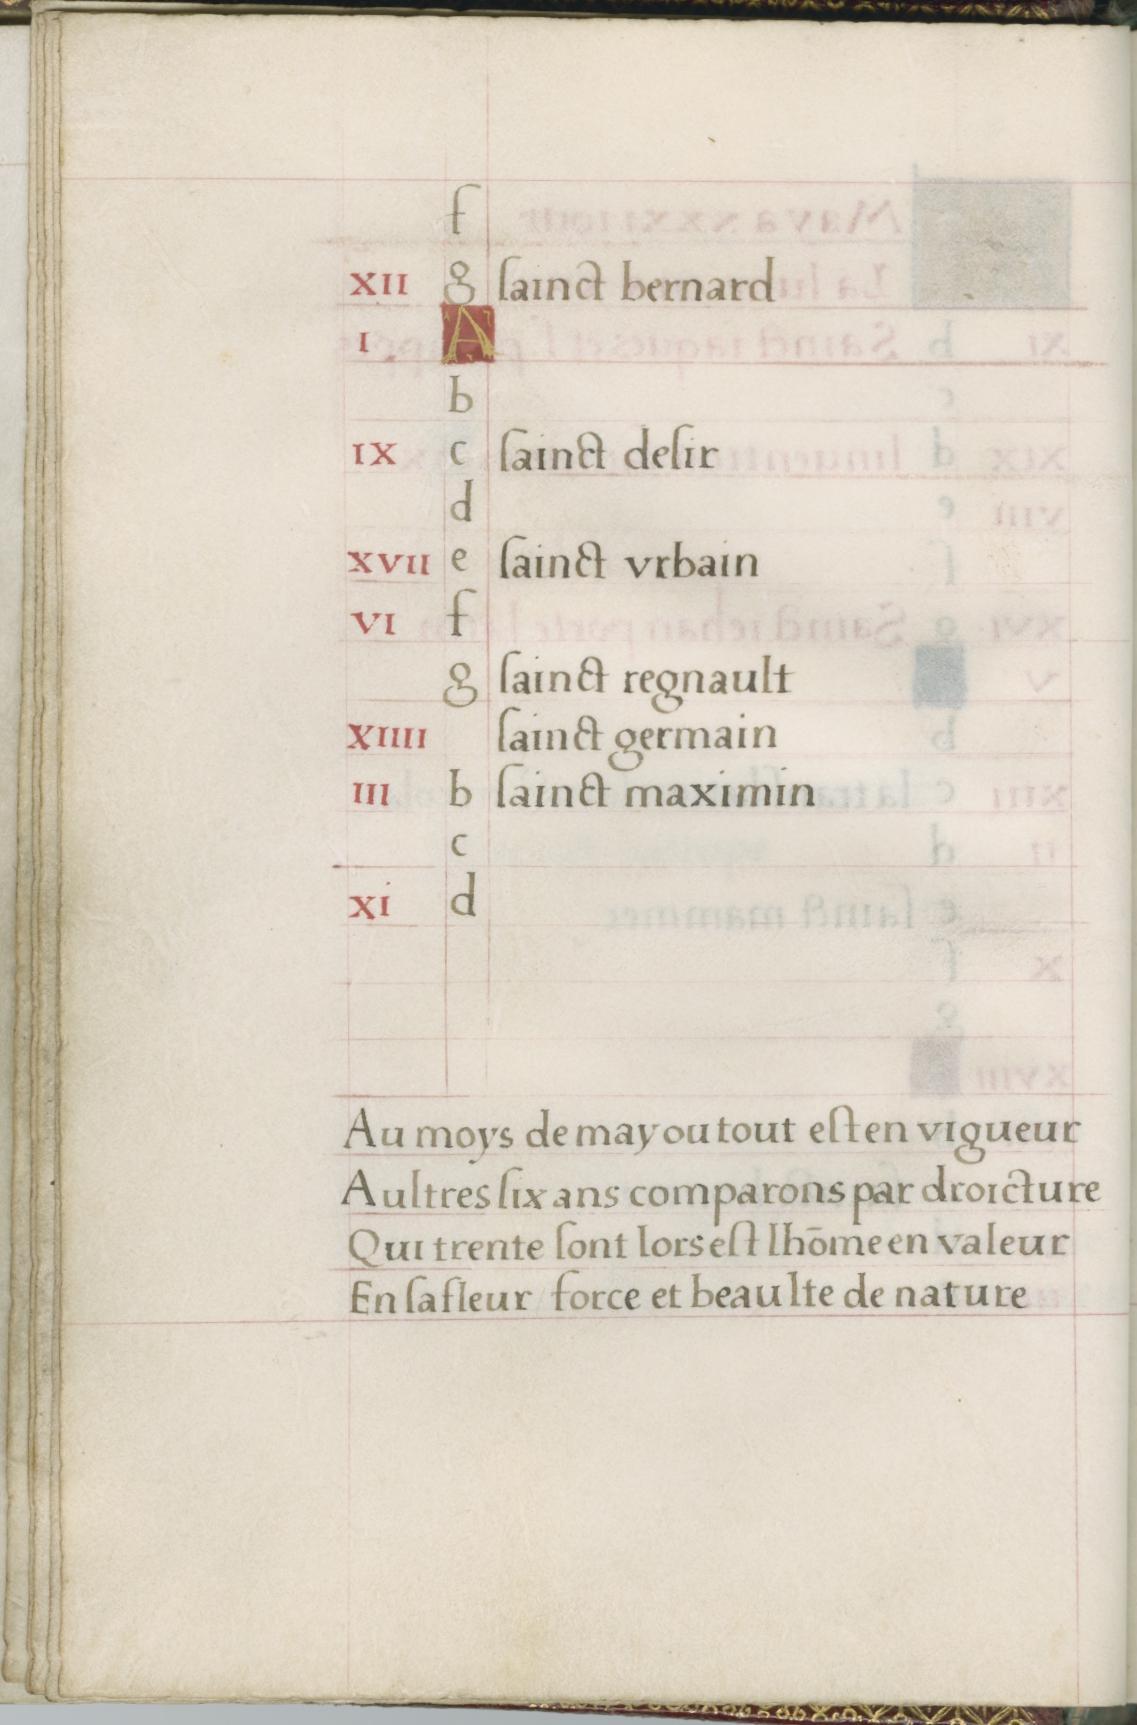 f
XII g sainct bernard
I A
b
IX c sainct desir
d
XVII e sainct vrbain
VI f
g sainct regnault
XIIII sainct germain
III b sainct maximin
c
xi d
Au moys de may ou tout est en vigueur
Aultres six ans comparons par droicture
Qui trente sont lors est lhōme en valeur
En sa fleur force et beaulte de nature